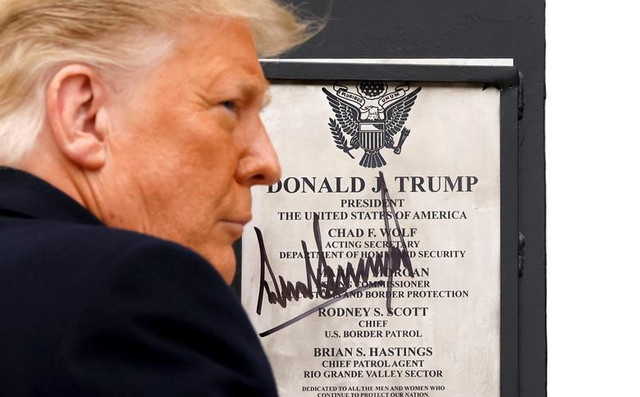 DONALD J. TRUMP
PRESIDENT
THE UNITED STATES OF AMERICA
CHAD F. WOLF
ACTING SECRETARY
DEPARTMENT OF HOMELAND SECURITY
MORGAN
COMMISSIONER
AND BORDER PROTECTION
RODNEY S. SCOTT
CHIEF
U.S. BORDER PATROL
BRIAN S. HASTINGS
CHIEF PATROL AGENT
RIO GRANDE VALLEY SECTOR
DEDICATED TO ALL THE MEN AND WOMEN WHO
CONTINUE TO PROTECT OUR NATION.